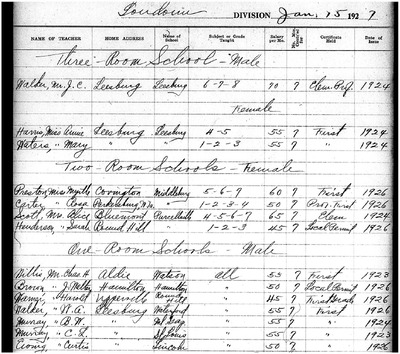 Loudoun DIVISION Jan. 15 1927
NAME OF TEACHER HOME ADDRESS Name of School Subject or Grade Taught Salary per Mo. No. Mos. Contract for Certificate Held Date of Issue
Three-Room School - Male
Walker, Mr. J. C. Leesburg Leesburg 6-7-8 70 7 Elem. Prof. 1924
Female
Harris, Miss Annie Leesburg Leesburg 4-5 55 7 First 1924
Waters, " Mary " " 1-2-3 55 7 " 1924
Two-Room Schools - Female
Preston, Miss Covington Middleburg 5-6-7 60 7 First 1926
Carter, " Rosa 1-2-3-4 50 7 Pro. First 1926
Scott, Mrs. Alice Bluemont Purcellville 4-5-6-7 65 7 Elem 1924
Henderson, " Sarah Round Hill " 1-2-3 45 7 Local Permit 1926
One-Room Schools - Male
Willis, Mr. Chas. H. Aldie Watson all 55 7 First 1923
Brown, " J. Hamilton Hamilton " 50 7 Local Permit 1926
" Harold Round Hill " 45 7 First Grade 1926
Walker, " W. A. Leesburg Waterford " 55 7 First 1926
Murray, " B. W. " " 55 7 " 1924
Murray, " C. L. " St. Louis " 55 7 " 1923
" Curtis " Lincoln " 50 7 " 1926